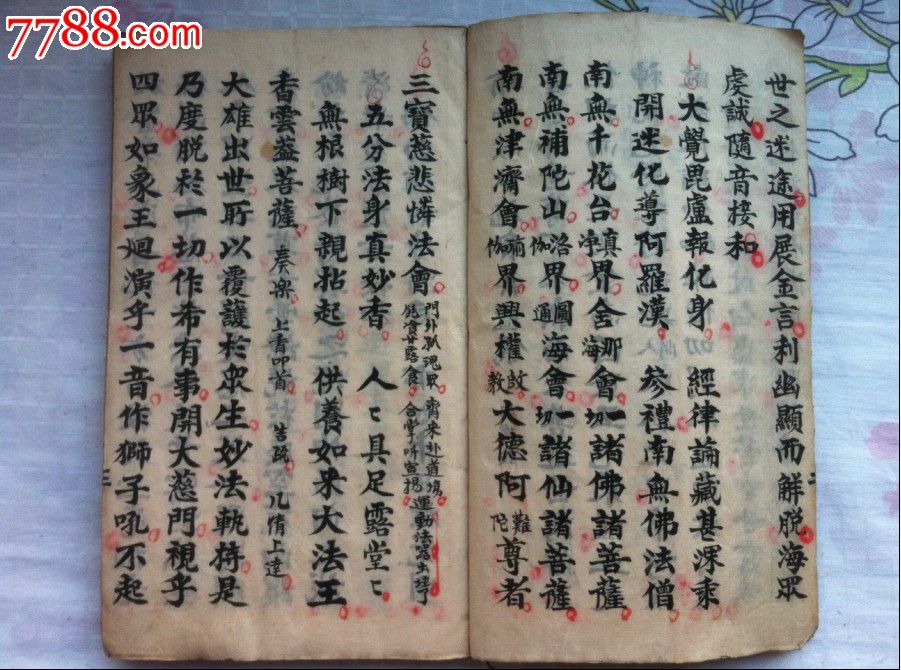 7788.com
世之迷途用展金言利幽顯而解脱海眾
虔誠隨音接和
大覺毘盧報化身 經律論藏甚深乘
開迷化導阿羅漢 参禮南無佛法僧
南無千花台 界舍那會 諸佛諸菩薩
南無補陀山 界圓通海會 諸仙諸菩薩
南無津濟會 瑜伽界興權啟教大德阿難陀尊者
三寶慈悲憐法會 門外孤魂 齊來赴道場
五分法身真妙香 人〻具足露堂〻
無根樹下親拈起 供養如來大法王
香雲蓋菩薩 奏樂 上香叩首 告疏 凡情上達
大雄出世所以覆護於眾生妙法軌持是
乃度脱於一切作希有事開大慈門視乎
四眾如象王迴演乎一音作獅子吼不起
三
二